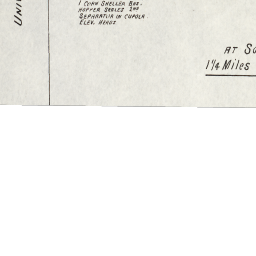 1 CORN SHELLER BAS.
HOPPER SCALES 2ND
SEPARATOR IN CUPOLA
ELEV. HEADS
UNI
AT SU
1¼ MILES